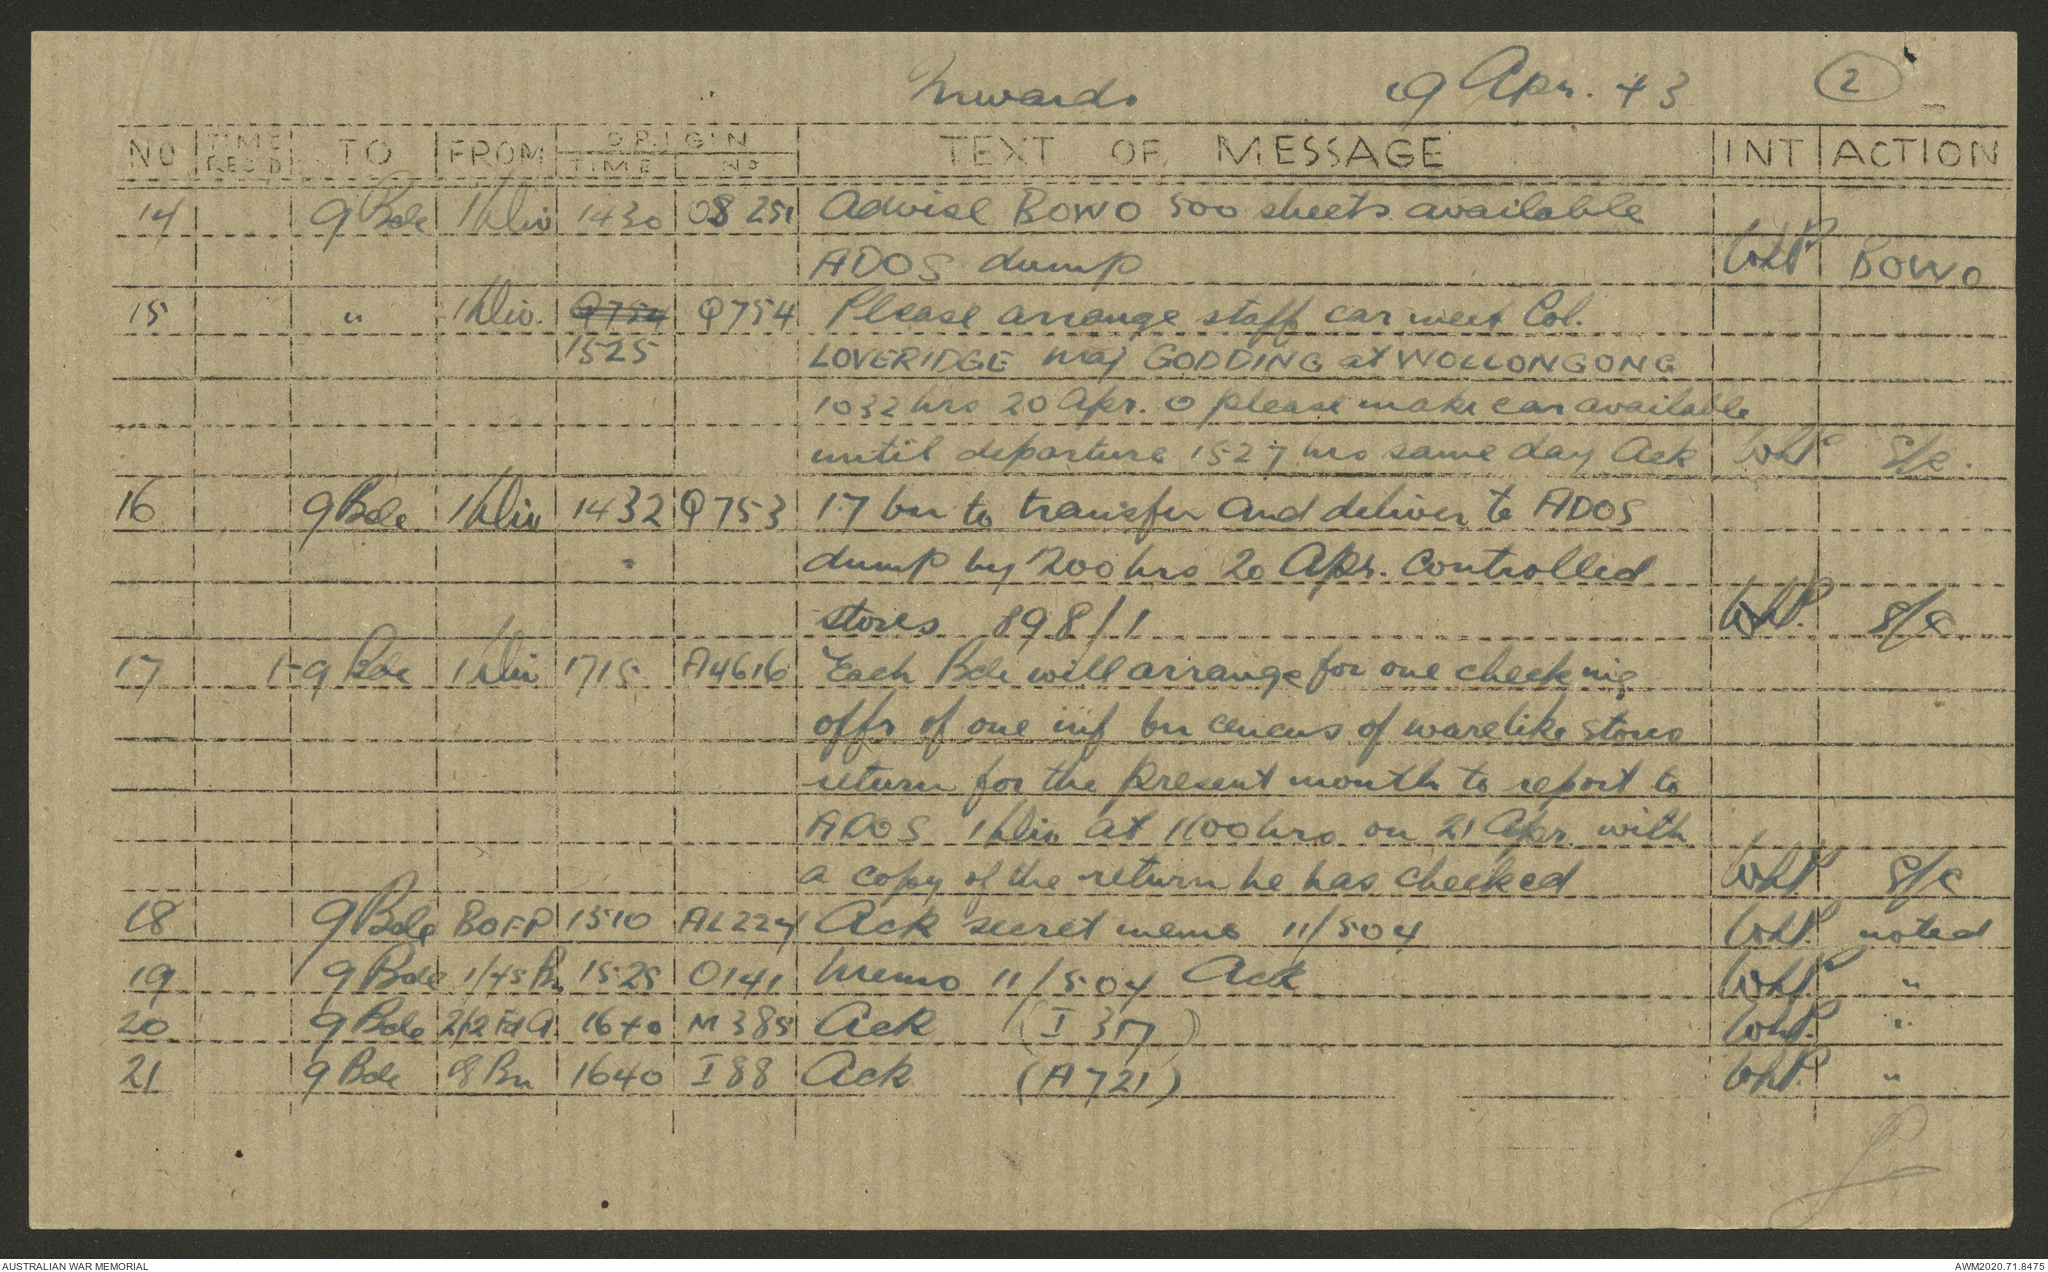 Inwards 19 Apr. 43 2
NO TIME REC'D TO FROM ORIGIN TIME NO TEXT OF MESSAGE INT ACTION
14 9 Bde 1 Div 1430 OS 251 Advise BOWO 500 sheets available
ADOS dump WhP BOWO
15 " 1 Div. Q754 Q754 Please arrange staff car meet Col.
1525 LOVERIDGE maj GODDING at WOLLONGONG
1032 hrs 20 Apr. O please make car available
until departure 1527 hrs same day Ack WhP S/c.
16 9 Bde 1 Div 1432 Q753 17 bn to transfer and deliver to ADOS
dump by 1200 hrs 20 Apr. Controlled
stores 898/1 WhP. S/c
17 1-9 Bde 1 Div 1715 A4616 Each Bde will arrange for one checking
offr of one inf bn census of warelike stores
return for the present month to report to
ADOS 1 Div at 1100 hrs on 21 Apr. with
a copy of the return he has checked WhP. S/c
18 9 Bde BOFP 1510 AL227 Ack secret memo 11/504 WhP. noted
19 9 Bde 1/45 Bn 1525 O141 Memo 11/504 Ack WhP. "
20 9 Bde 2/2 Fd A 1640 M385 Ack (I 317) WhP. "
21 9 Bde 8 Bn 1640 I88 Ack (A721) WhP. "
AUSTRALIAN WAR MEMORIAL AWM2020.71.8475